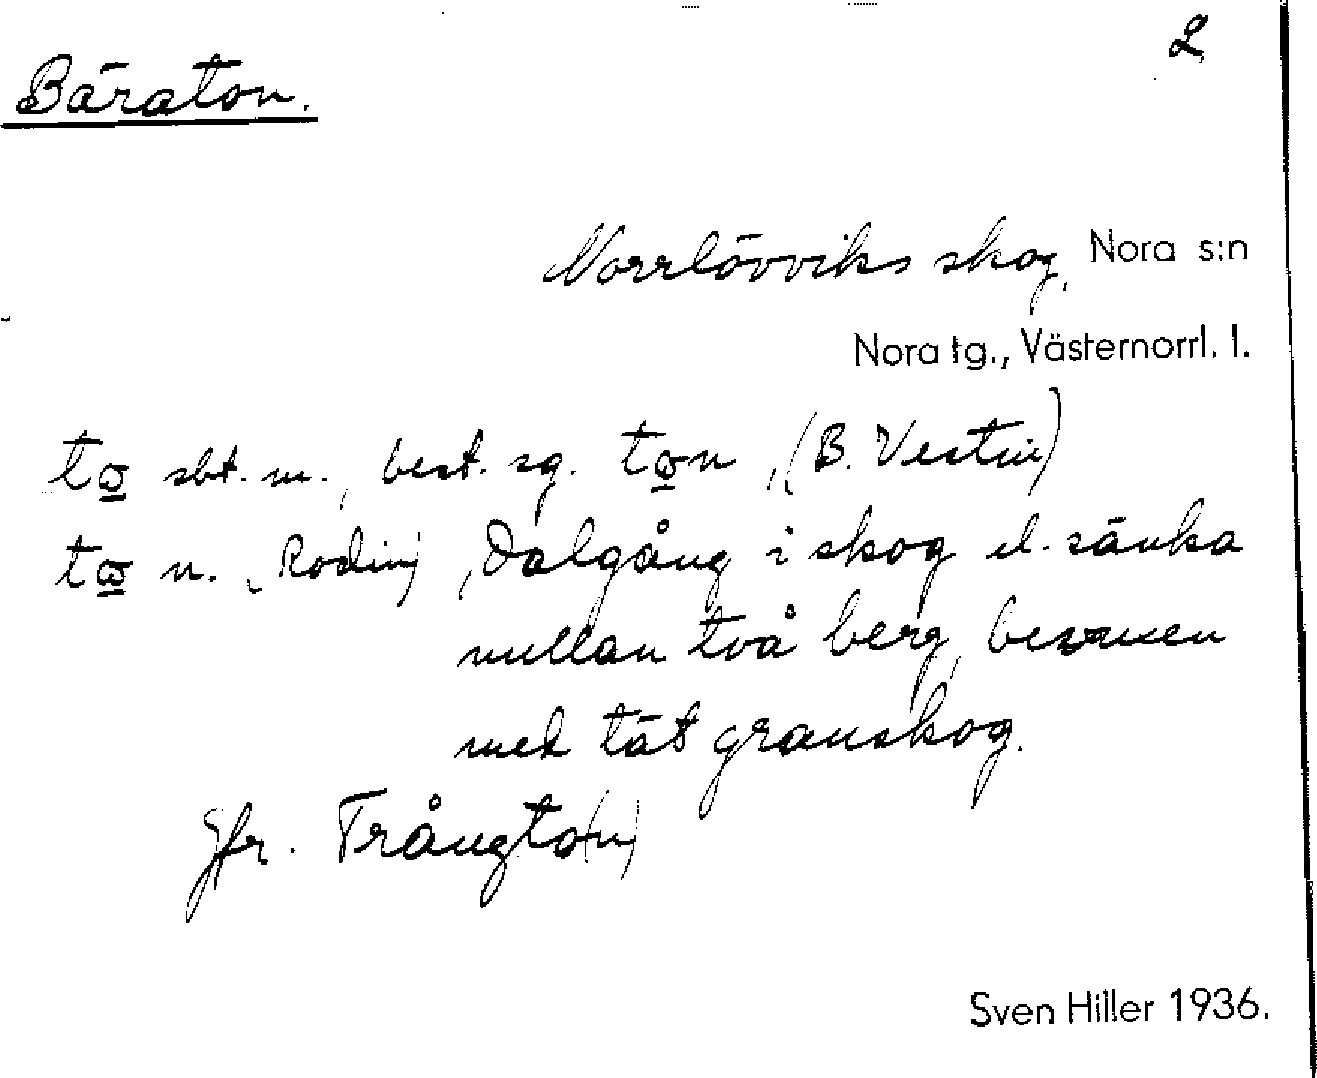 2
Bäraton.
Norrlövviks skog, Nora s:n
Nora tg., Västernorrl. l.
to̲ sbt. m., best. sg. to̲n, (B. Vestin)
to̲ n. (Rodin), Dalgång i skog el. sänka
mellan två berg, bevuxen
med tät granskog.
Jfr. Trångto(n)
Sven Hiller 1936.